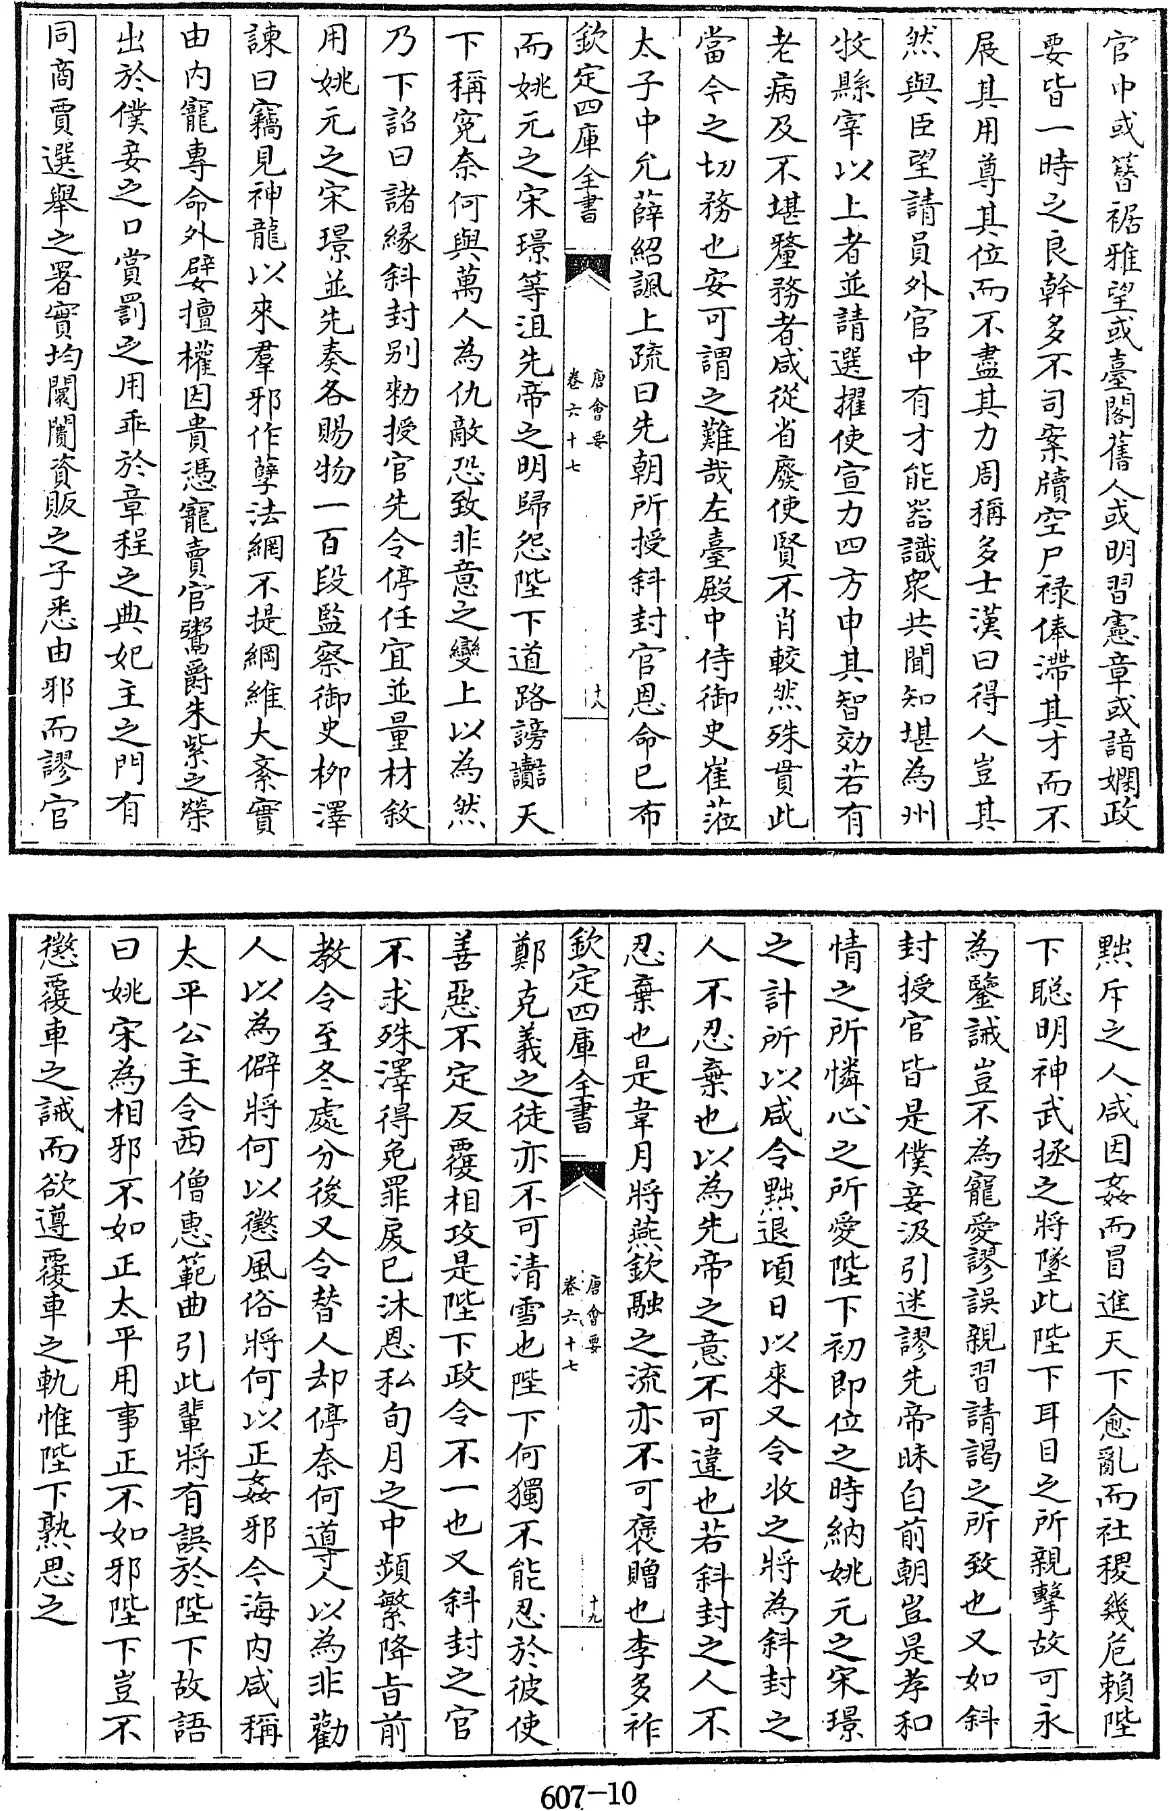 官中或簪裾雅望或臺閣舊人或明習憲章或諳嫻政
要皆一時之良幹多不司案牘空尸禄俸滯其才而不
展其用尊其位而不盡其力周稱多士漢曰得人豈其
然與臣望請員外官中有才能器識衆共聞知堪為州
牧縣宰以上者並請選擢使宣力四方申其智効若有
老病及不堪釐務者咸從省廢使賢不肖較然殊貫此
當今之切務也安可謂之難哉左臺殿中侍御史崔蒞
太子中允薛紹諷上疏曰先朝所授斜封官恩命已布
欽定四庫全書
唐會要
卷六十七
十八
而姚元之宋璟等沮先帝之明歸怨陛下道路謗讟天
下稱寃奈何與萬人為仇敵恐致非意之變上以為然
乃下詔曰諸縁斜封别勅授官先令停任宜並量材敘
用姚元之宋璟並先奏各賜物一百段監察御史柳澤
諫曰竊見神龍以來羣邪作孽法網不提綱維大紊實
由内寵專命外嬖擅權因貴憑寵賣官鬻爵朱紫之榮
出於僕妾之口賞罰之用乖於章程之典妃主之門有
同商賈選舉之署實均闤闠資販之子悉由邪而謬官
黜斥之人咸因姦而冒進天下愈亂而社稷幾危賴陛
下聰明神武拯之將墜此陛下耳目之所親擊故可永
為鑒誡豈不為寵愛謬誤親習請謁之所致也又如斜
封授官皆是僕妾汲引迷謬先帝昧自前朝豈是孝和
情之所憐心之所愛陛下初即位之時納姚元之宋璟
之計所以咸令黜退頃日以來又令收之將為斜封之
人不忍棄也以為先帝之意不可違也若斜封之人不
忍棄也是韋月將燕欽融之流亦不可褒贈也李多祚
欽定四庫全書
唐會要
卷六十七
十九
鄭克義之徒亦不可清雪也陛下何獨不能忍於彼使
善惡不定反覆相攻是陛下政令不一也又斜封之官
不求殊澤得免罪戾已沐恩私旬月之中頻繁降旨前
教令至冬處分後又令替人却停奈何導人以為非勸
人以為僻將何以懲風俗將何以正姦邪今海内咸稱
太平公主令西僧惠範曲引此輩將有誤於陛下故語
曰姚宋為相邪不如正太平用事正不如邪陛下豈不
懲覆車之誡而欲遵覆車之軌惟陛下熟思之
607-10